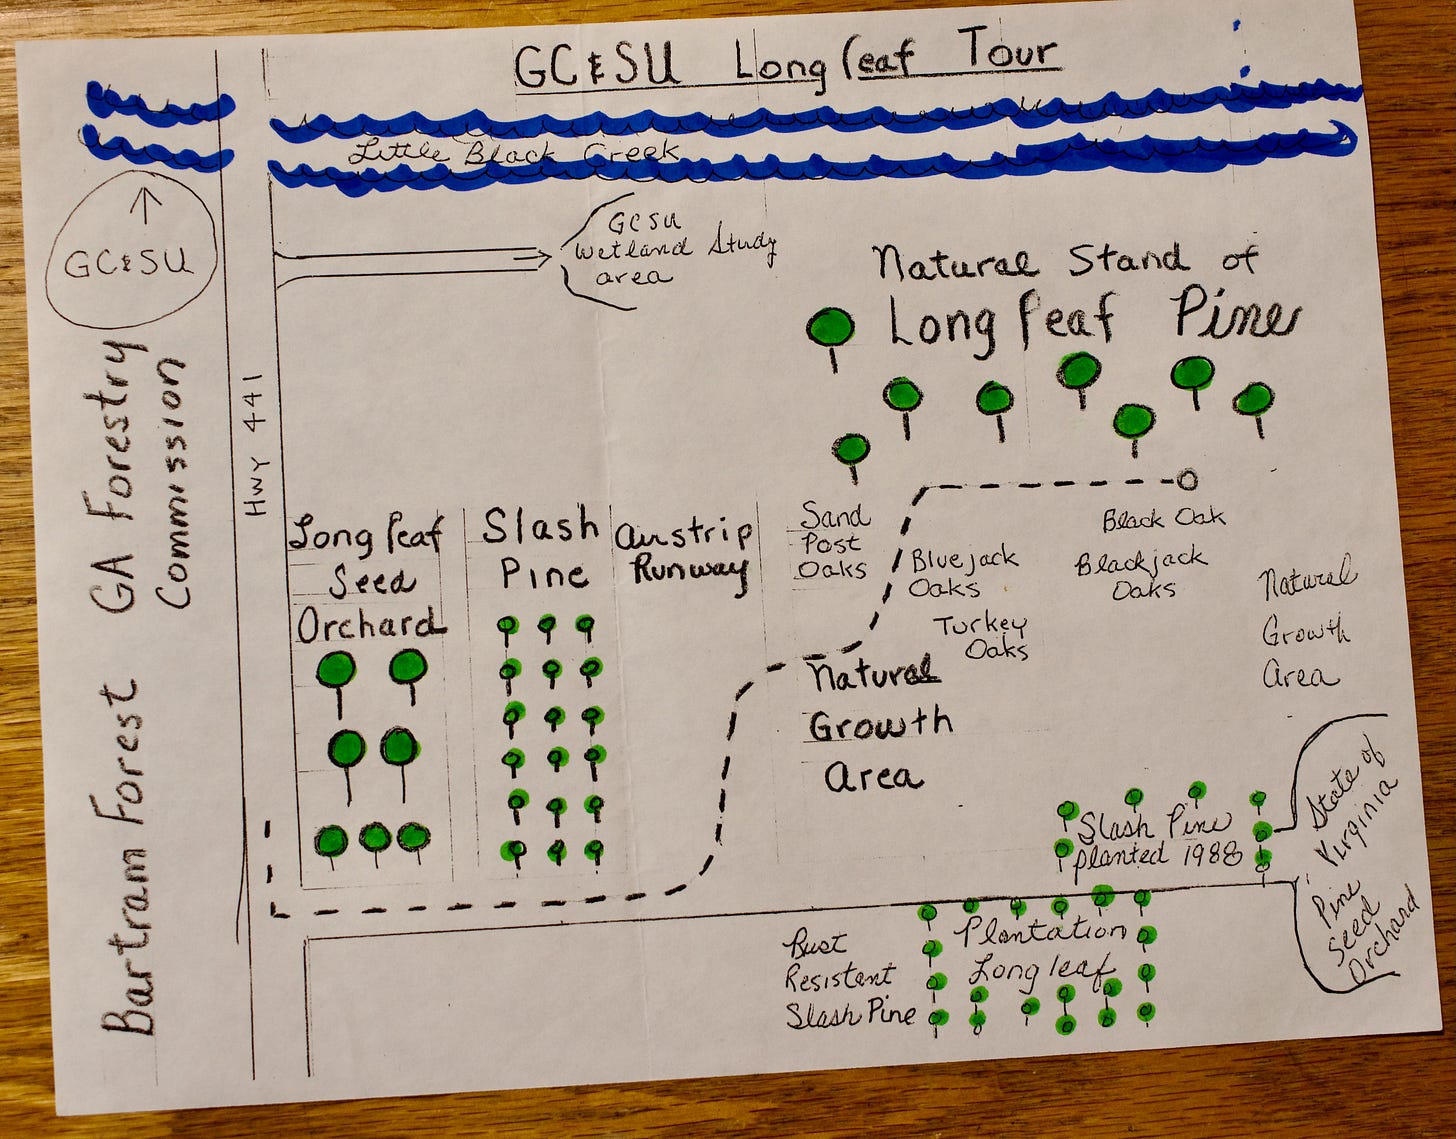 GC&SU Longleaf Tour
Little Black Creek
GC&SU
GCSU
Wetland Study
area
Natural Stand of
Longleaf Pine
Bartram Forest GA Forestry
Commission
HWY 441
Longleaf
Seed
Orchard
Slash
Pine
Airstrip
Runway
Sand
Post
Oaks
Bluejack
Oaks
Turkey
Oaks
Black Oak
Blackjack
Oaks
Natural
Growth
Area
Natural
Growth
Area
Slash Pine
planted 1988
State of
Virginia
Pine
Seed
Orchard
Rust
Resistant
Slash Pine
Plantation
Longleaf